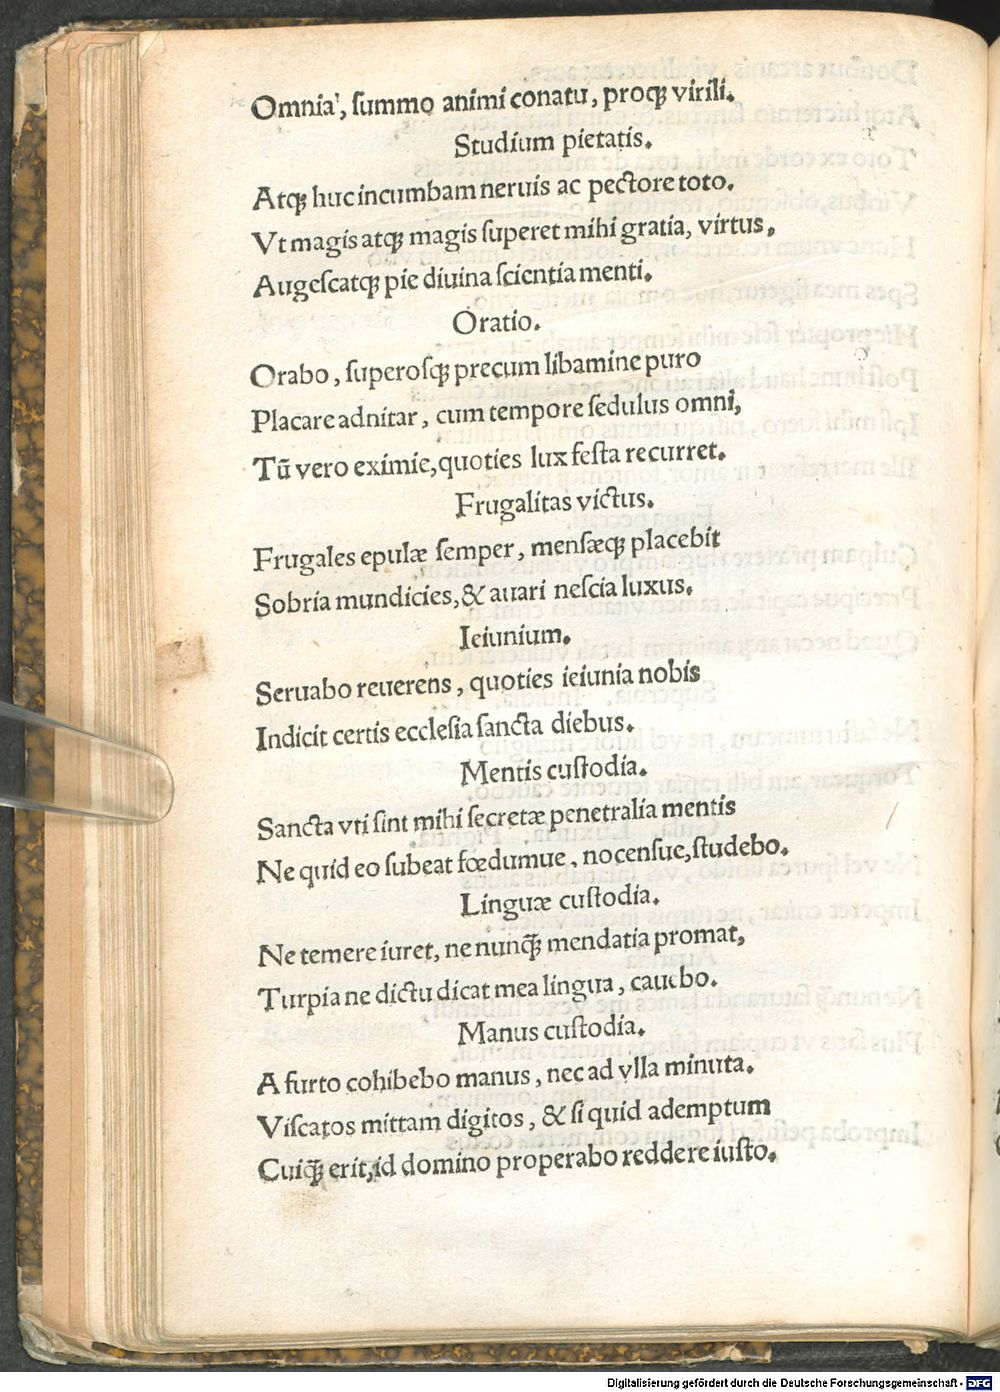 Omnia', ſummo animi conatu, proqꝫ virili.
Studium pietatis.
Atqꝫ huc incumbam neruis ac pectore toto.
Vt magis atqꝫ magis ſuperet mihi gratia, virtus,
Augeſcatqꝫ pie diuina ſcientia menti.
Oratio.
Orabo, ſuperoſqꝫ precum libamine puro
Placare adnitar, cum tempore ſedulus omni,
Tū vero eximie, quoties lux feſta recurret.
Frugalitas victus.
Frugales epulæ ſemper, menſæqꝫ placebit
Sobria mundicies, & auari neſcia luxus.
Ieiunium.
Seruabo reuerens, quoties ieiunia nobis
Indicit certis eccleſia ſancta diebus.
Mentis cuſtodia.
Sancta vti ſint mihi ſecretæ penetralia mentis
Ne quid eo ſubeat fœdumue, nocenſue, ſtudebo.
Linguæ cuſtodia.
Ne temere iuret, ne nunq̄ꝫ mendatia promat,
Turpia ne dictu dicat mea lingua, cauebo.
Manus cuſtodia.
A furto cohibebo manus, nec ad vlla minuta.
Viſcatos mittam digitos, & ſi quid ademptum
Cuiq̄ꝫ erit, id domino properabo reddere iuſto.
Digitalisierung gefördert durch die Deutsche Forschungsgemeinschaft - DFG